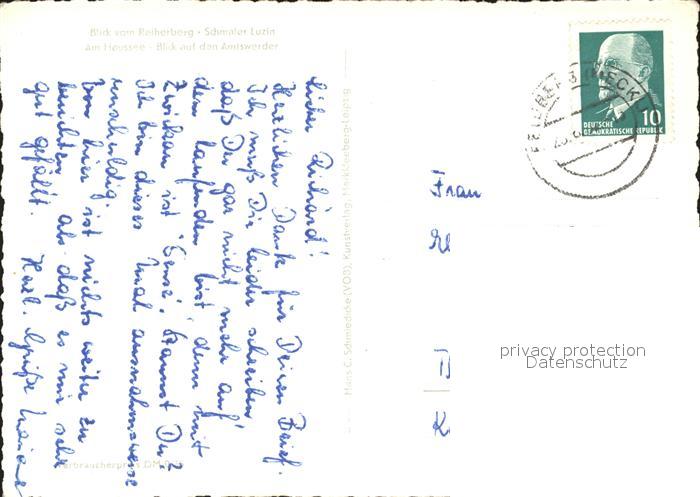 Blick vom Reiherberg · Schmaler Luzin
Am Haussee · Blick auf den Amtswerder
Lieber Richard!
Herzlichen Dank für Deinen Brief.
Ich muß Dir leider schreiben,
daß Du gar nicht mehr auf
dem laufenden bist, denn mit
Zwickau ist "Sense". Staunst Du?
Ich bin dieses Mal ausnahmsweise
unschuldig.
Von hier ist nichts weiter zu
berichten, als daß es mir sehr
gut gefällt.
Herzl. Grüße
Verbraucherpreis DM
Hans C. Schmiedicke (VOB), Kunstverlag, Markkleeberg-Leipzig
FELDBERG (MECKL
10
DEUTSCHE
DEMOKRATISCHE REPUBLIK
Frau
privacy protection
Datenschutz